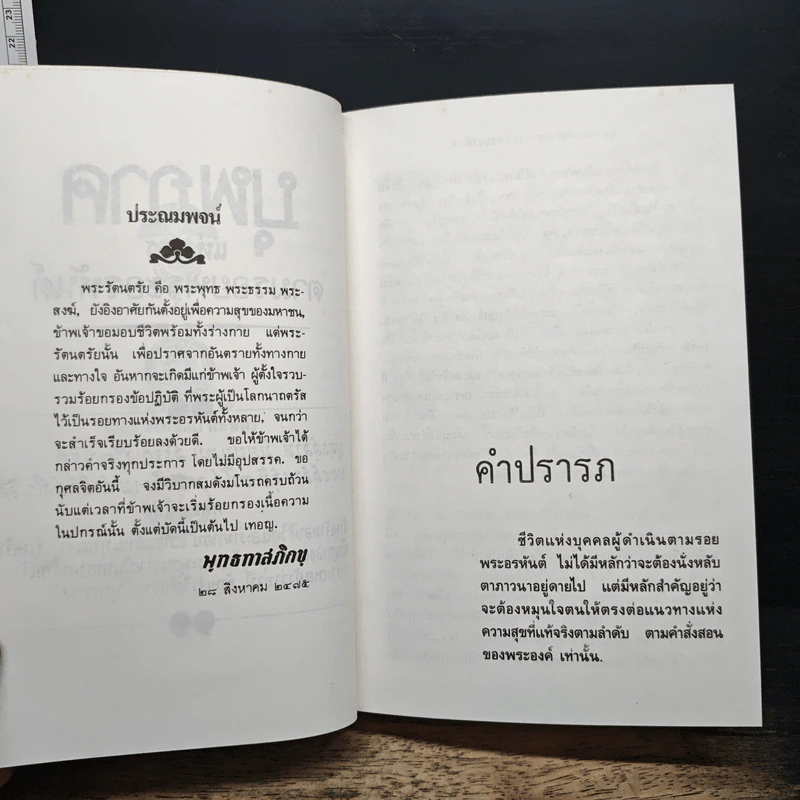 23
22
ประณมพจน์
พระรัตนตรัย คือ พระพุทธ พระธรรม พระ-
สงฆ์, ยังอิงอาศัยกันตั้งอยู่เพื่อความสุขของมหาชน,
ข้าพเจ้าขอมอบชีวิตพร้อมทั้งร่างกาย แด่พระ-
รัตนตรัยนั้น เพื่อปราศจากอันตรายทั้งทางกาย
และทางใจ อันหากจะเกิดมีแก่ข้าพเจ้า ผู้ตั้งใจรวบ-
รวมร้อยกรองข้อปฏิบัติ ที่พระผู้เป็นโลกนาถตรัส
ไว้เป็นรอยทางแห่งพระอรหันต์ทั้งหลาย, จนกว่า
จะสำเร็จเรียบร้อยลงด้วยดี. ขอให้ข้าพเจ้าได้
กล่าวคำจริงทุกประการ โดยไม่มีอุปสรรค. ขอ
กุศลจิตอันนี้ จงมีวิบากสมดังมโนรถครบถ้วน
นับแต่เวลาที่ข้าพเจ้าจะเริ่มร้อยกรองเนื้อความ
ในปกรณ์นั้น ตั้งแต่บัดนี้เป็นต้นไป เทอญ.
พุทธทาสภิกขุ
๒๘ สิงหาคม ๒๔๗๕
คำปรารภ
ชีวิตแห่งบุคคลผู้ดำเนินตามรอย
พระอรหันต์ ไม่ได้มีหลักว่าจะต้องนั่งหลับ
ตาภาวนาอยู่ดายไป แต่มีหลักสำคัญอยู่ว่า
จะต้องหมุนใจตนให้ตรงต่อแนวทางแห่ง
ความสุขที่แท้จริงตามลำดับ ตามคำสั่งสอน
ของพระองค์ เท่านั้น.